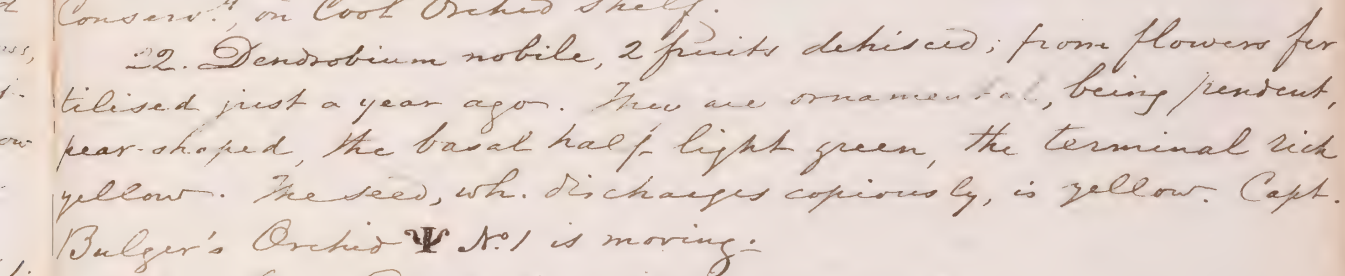 Conserv.y, on Cool Orchid shelf.
22. Dendrobium nobile, 2 fruits dehisced; from flowers fer
tilised just a year ago. They are ornamental, being pendent,
pear-shaped, the basal half light green, the terminal rich
yellow. The seed, wh. discharges copiously, is yellow. Capt.
Bulger's Orchid Ψ No. 1 is moving.